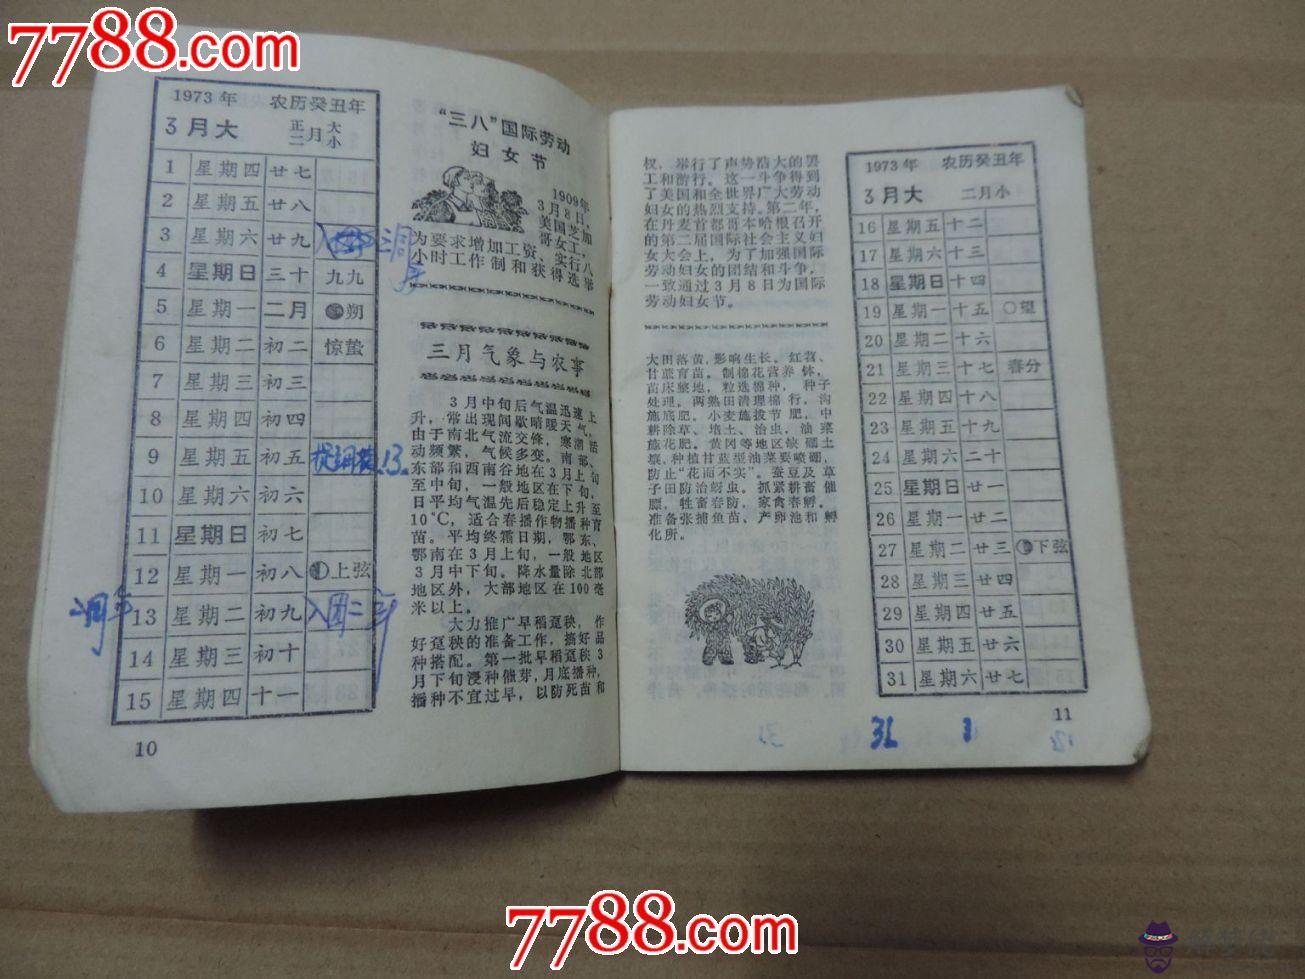 7788.com
1973年 农历癸丑年
3月大 正月大
二月小
1 星期四 廿七
2 星期五 廿八
3 星期六 廿九
4 星期日 三十 九九
5 星期一 二月 朔
6 星期二 初二 惊蛰
7 星期三 初三
8 星期四 初四
9 星期五 初五
10 星期六 初六
11 星期日 初七
12 星期一 初八 上弦
13 星期二 初九
14 星期三 初十
15 星期四 十一
10
“三八”国际劳动
妇女节
1909年
3月8日,
美国芝加
哥女工,
为要求增加工资、实行八
小时工作制和获得选举
三月气象与农事
3月中旬后气温迅速上
升,常出现间歇晴暖天气,
由于南北气流交锋,寒潮活
动频繁,气候多变。南部、
东部和西南谷地在3月上旬
至中旬,一般地区在下旬,
日平均气温先后稳定上升至
10℃,适合春播作物播种育
苗。平均终霜日期,鄂东、
鄂南在3月上旬,一般地区
3月中下旬。降水量除北部
地区外,大部地区在100毫
米以上。
大力推广早稻蔸秧,作
好蔸秧的准备工作,搞好品
种搭配。第一批早稻蔸秧3
月下旬浸种催芽,月底播种,
播种不宜过早,以防死苗和
权,举行了声势浩大的罢
工和游行。这一斗争得到
了美国和全世界广大劳动
妇女的热烈支持。第二年,
在丹麦首都哥本哈根召开
的第二届国际社会主义妇
女大会上,为了加强国际
劳动妇女的团结和斗争,
一致通过3月8日为国际
劳动妇女节。
大田落黄,影响生长。红苕、
甘蔗育苗。制棉花营养钵,
苗床整地,粒选棉种,种子
处理。两熟田清理棉行,沟
施底肥。小麦施拔节肥,中
耕除草、培土、治虫,油菜
施花肥。黄冈等地区缺硼土
壤,种植甘蓝型油菜要喷硼,
防止“花而不实”。蚕豆及草
子田防治蚜虫。抓紧耕畜催
膘,牲畜春防,家禽春孵。
准备张捕鱼苗、产卵池和孵
化所。
1973年 农历癸丑年
3月大 二月小
16 星期五 十二
17 星期六 十三
18 星期日 十四
19 星期一 十五 望
20 星期二 十六
21 星期三 十七 春分
22 星期四 十八
23 星期五 十九
24 星期六 二十
25 星期日 廿一
26 星期一 廿二
27 星期二 廿三 下弦
28 星期三 廿四
29 星期四 廿五
30 星期五 廿六
31 星期六 廿七
11
7788.com
7788.com